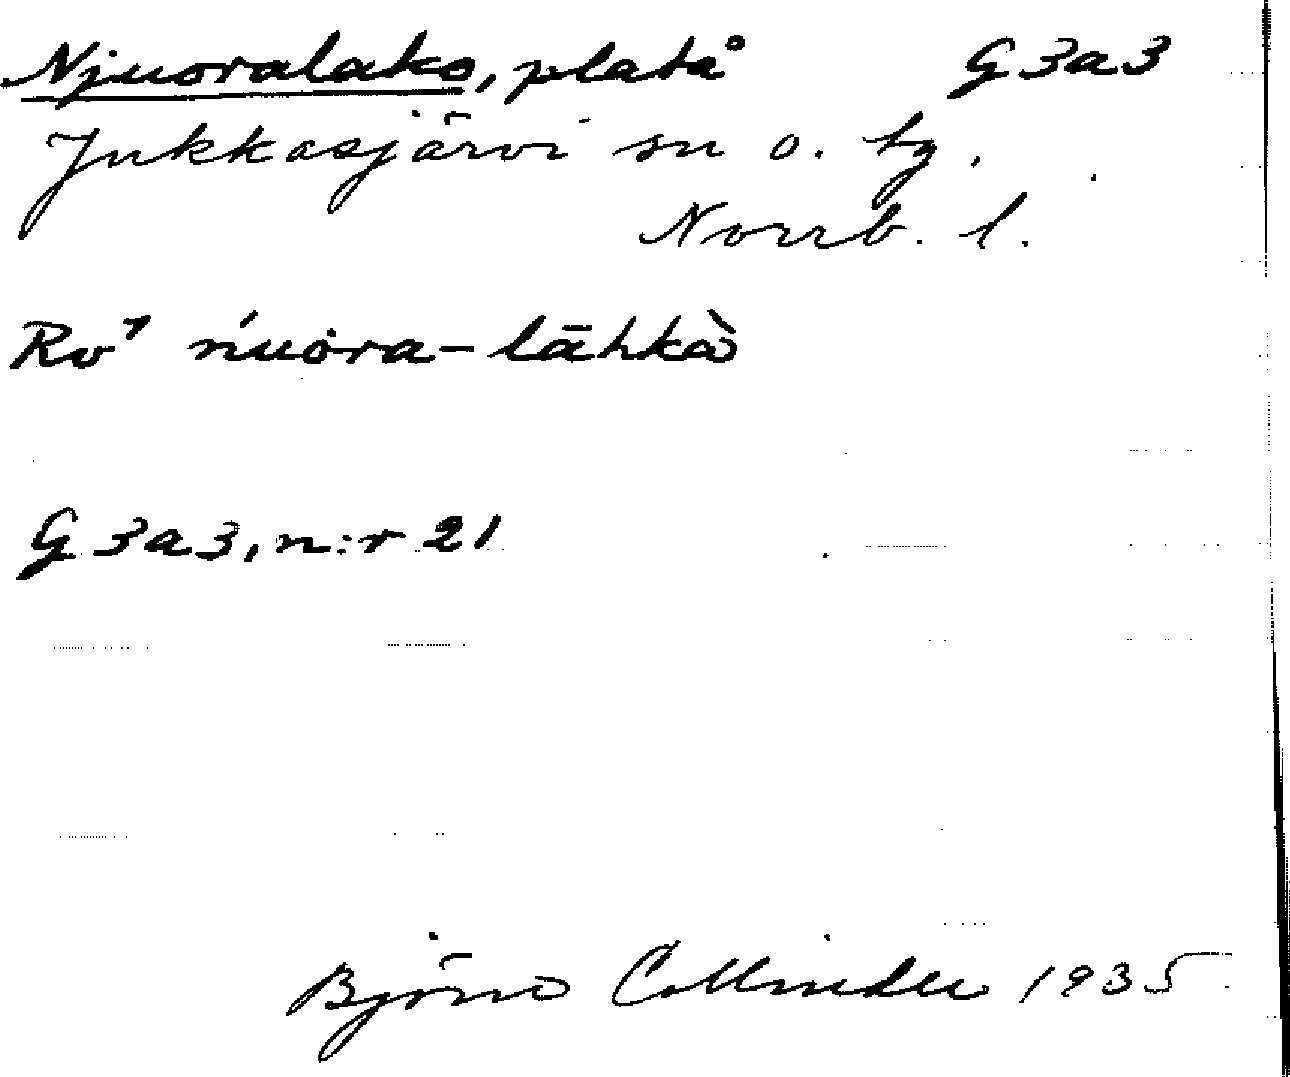 Njuoralako, platå G3a3
Jukkasjärvi sn o. tg.
Norrb. l.
Rv⁷ ńuȯra-lāhkà
G3a3, n:r 21
Björn Collinder 1935